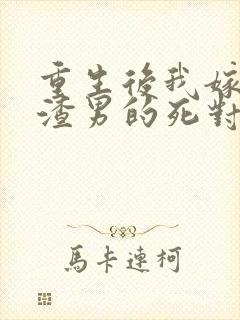 重生後我嫁
渣男的死對
馬卡連柯